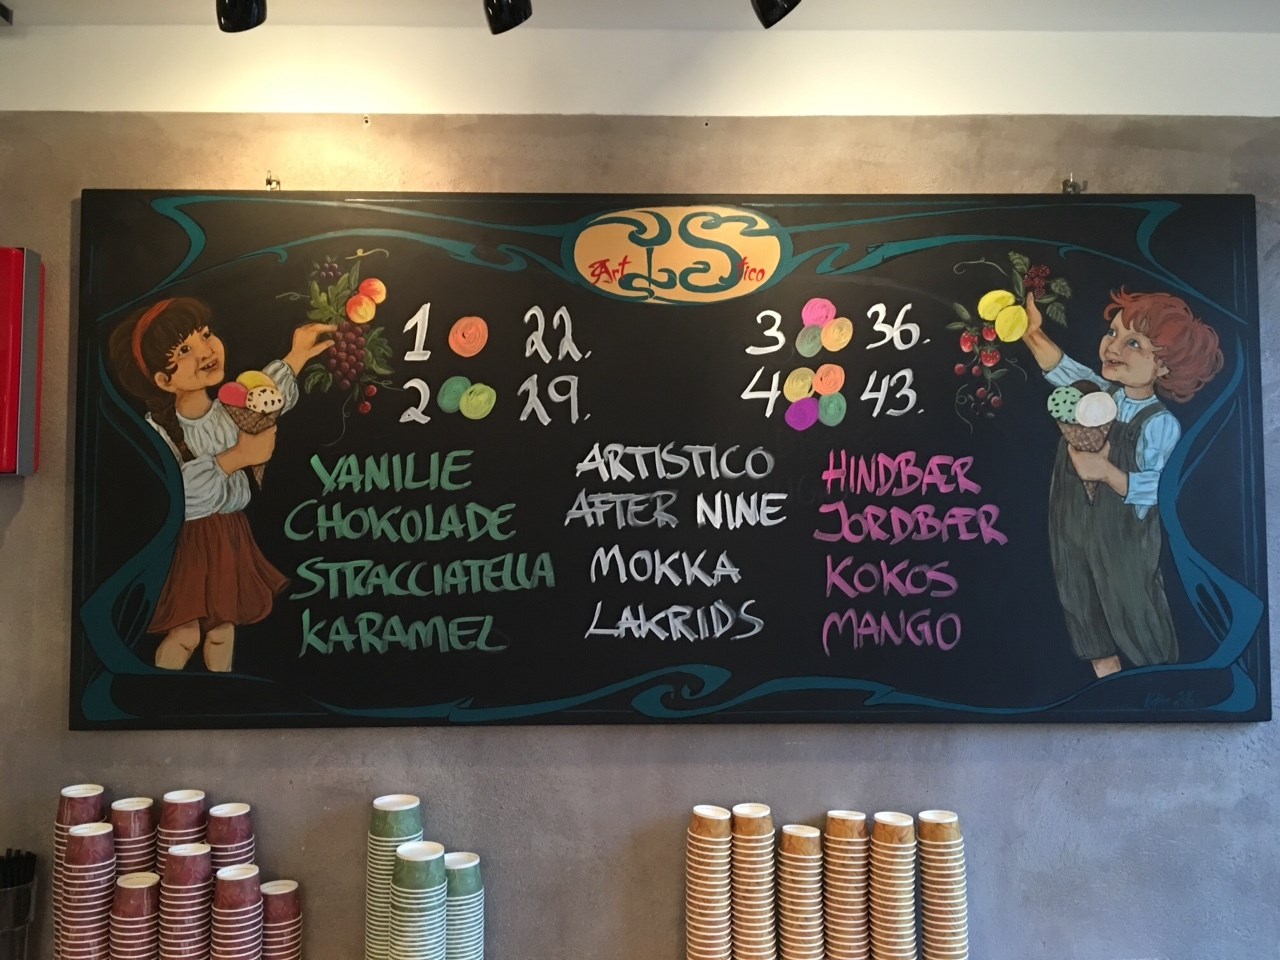 Art IS tico
1 22.
2 29.
3 36.
4 43.
VANILIE
CHOKOLADE
STRACCIATELLA
KARAMEL
ARTISTICO
AFTER NINE
MOKKA
LAKRIDS
HINDBÆR
JORDBÆR
KOKOS
MANGO